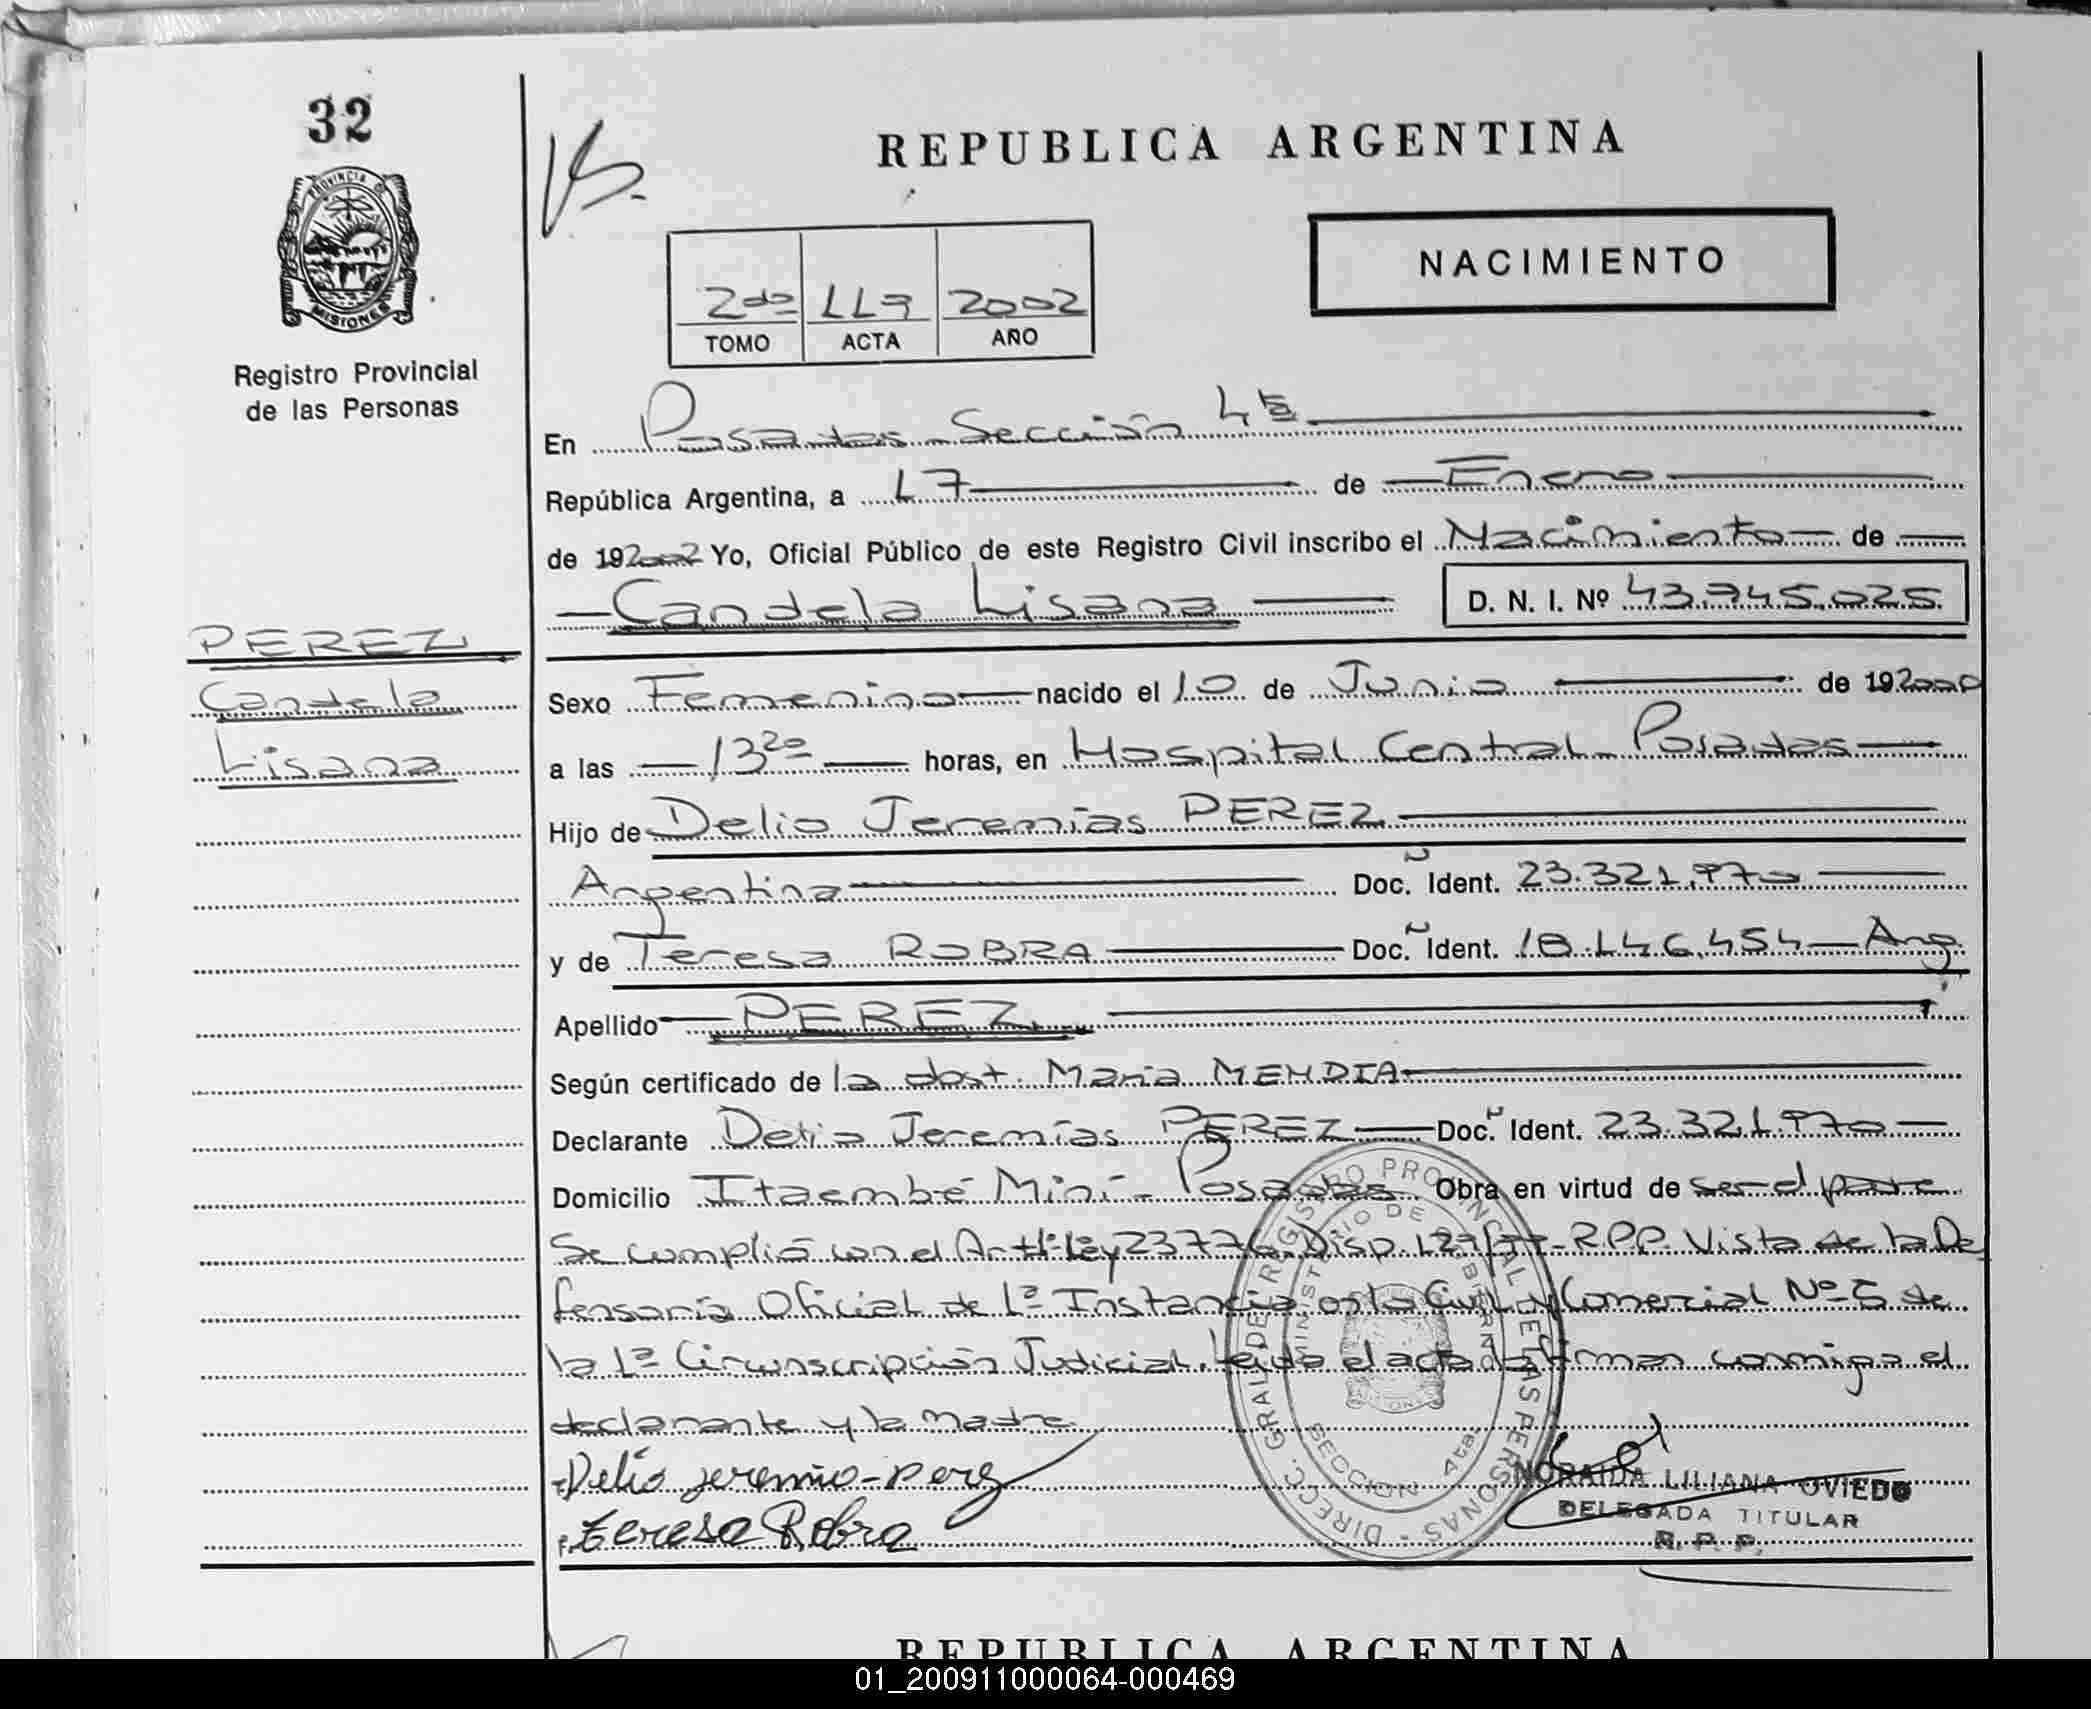 32
PROVINCIA DE
MISIONES
Registro Provincial
de las Personas
REPUBLICA ARGENTINA
NACIMIENTO
2do 119 2002
TOMO ACTA AÑO
En Posadas Sección 4ta
República Argentina, a 17 de Enero
de 192002 Yo, Oficial Público de este Registro Civil inscribo el Nacimiento de
Candela Lisana D. N. I. Nº 43.745.025
PEREZ
Candela
Lisana
Sexo Femenino nacido el 10 de Junio de 192000
a las 13 20 horas, en Hospital Central Posadas
Hijo de Delio Jeremías PEREZ
Argentina Doc. Ident. 23.321.970
y de Teresa ROBRA Doc. Ident. 18.146.454 Arg.
Apellido PEREZ
Según certificado de la obst. Maria MENDIA
Declarante Delio Jeremías PEREZ Doc. Ident. 23.321.970
Domicilio Itaembé Miní - Posadas Obra en virtud de ser el padre
Se cumplió con el Art. Ley 23776 Disp. 127/77-R.P.P. Vista de la De
fensoría Oficial de 1ª Instancia en lo Civil y Comercial Nº 5 de
la 1ª Circunscripción Judicial. Leída el acta la firman conmigo el
declarante y la madre
Delio jeremio perez
teresa Robra
DIRECC. GRAL. DE REGISTRO PROVINCIAL DE LAS PERSONAS
MINISTERIO DE GOBIERNO
SECCION 4ta.
NORAIDA LILIANA OVIEDO
DELEGADA TITULAR
R. P. P.
REPUBLICA ARGENTINA
01_200911000064-000469